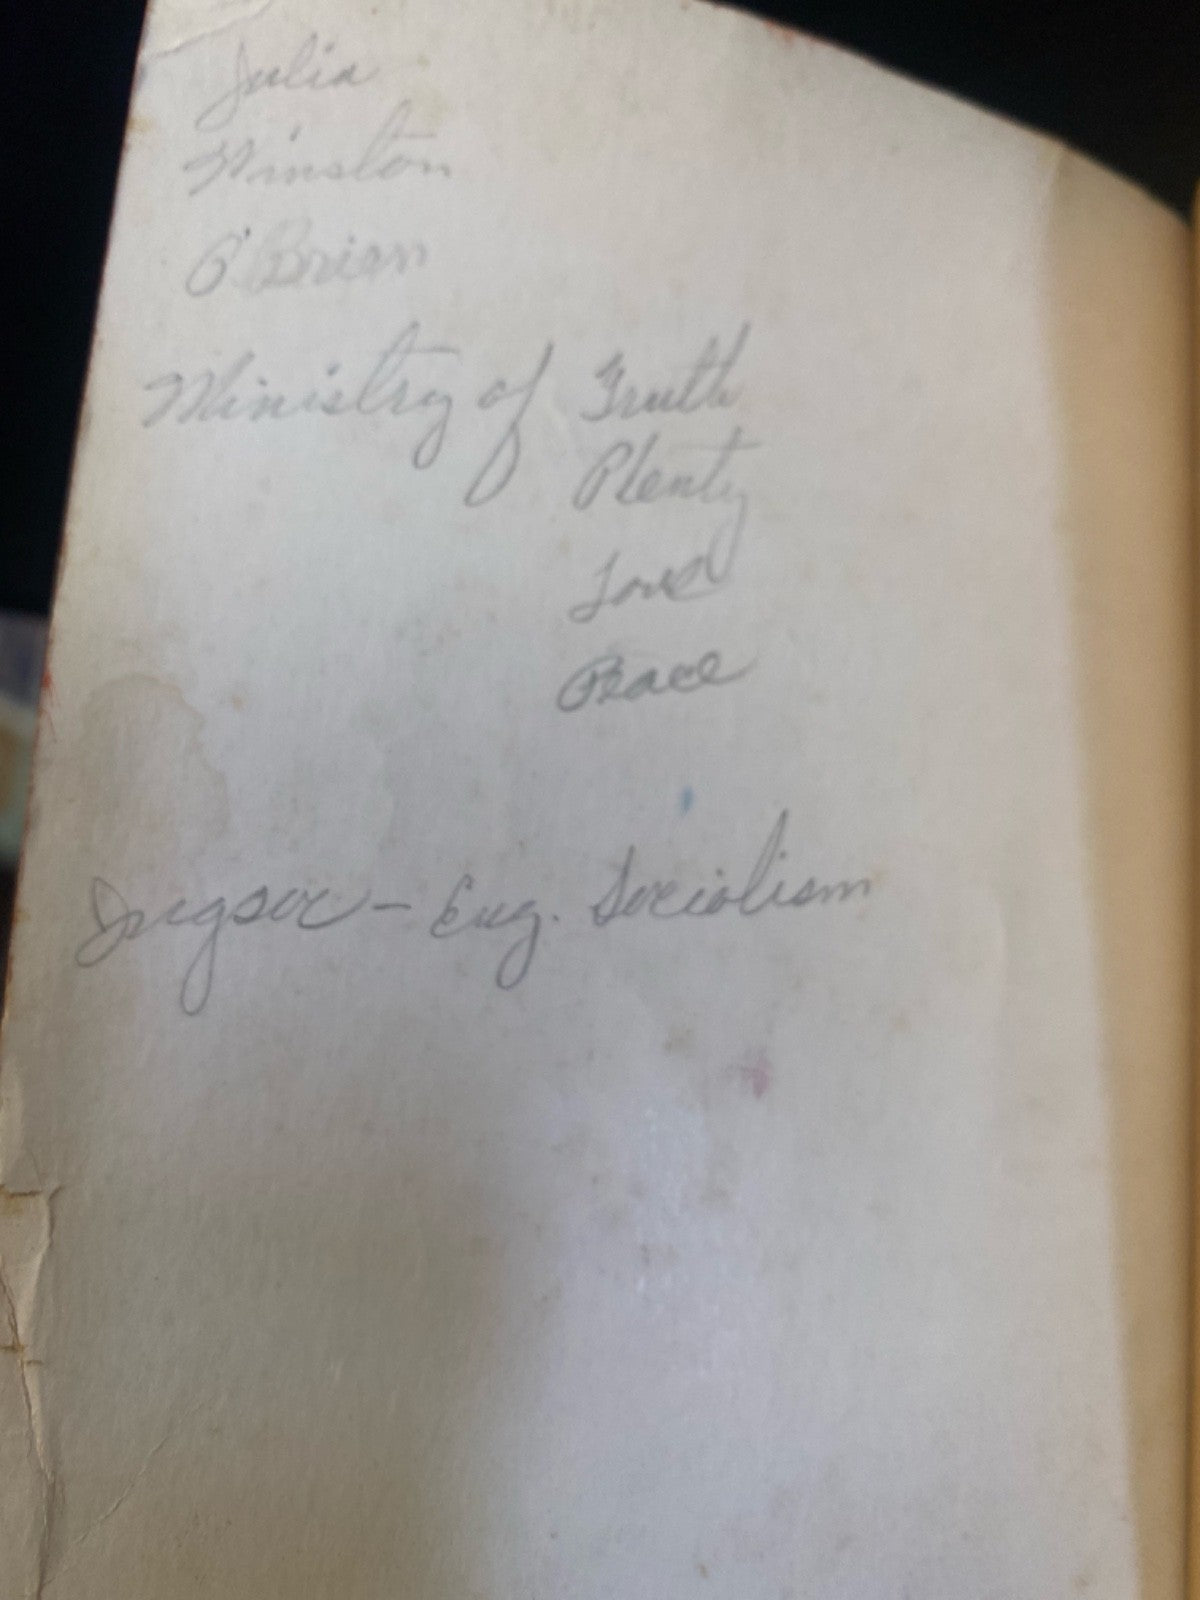 Julia
Winston
O'Brien
Ministry of Truth
Plenty
Love
Peace
Ingsoc - Eng. Socialism